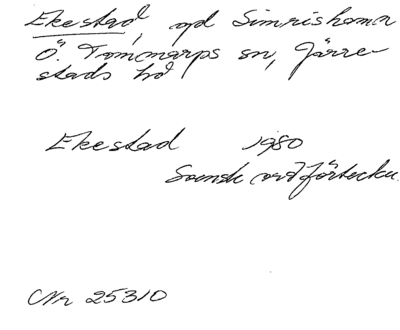 Ekestad, gd Simrishamn
Ö. Tommarps sn, Järre-
stads hd
Ekestad 1980
Svensk ortförteckn.
Nr 25310